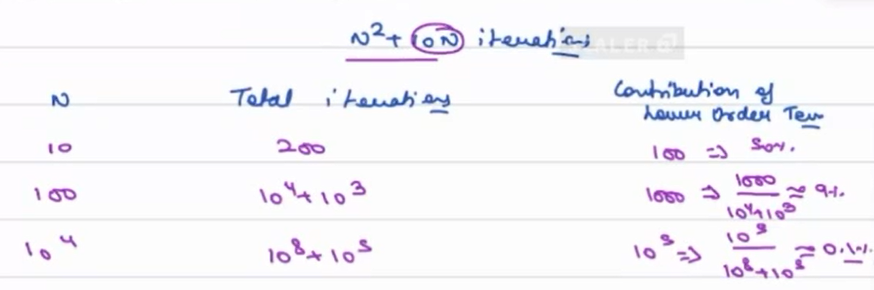 N²+ 10N iterations
N Total iterations Contribution of
Lower Order Term
10 200 100 => 50%.
100 10⁴+10³ 1000 => 1000/10⁴+10³ ≈ 9%
10⁴ 10⁸+10⁵ 10⁵ => 10⁵/10⁸+10⁵ ≈ 0.1%.